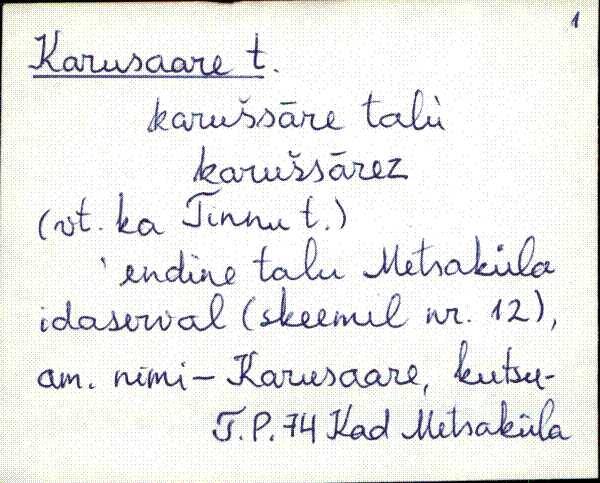 1
Karusaare t.
karušsāre talù
karušsārez
(vt. ka Tinnu t.)
' endine talu Metsaküla
idaserval (skeemil nr. 12),
am. nimi – Karusaare, kutsu-
T.P. 74 Kad Metsaküla